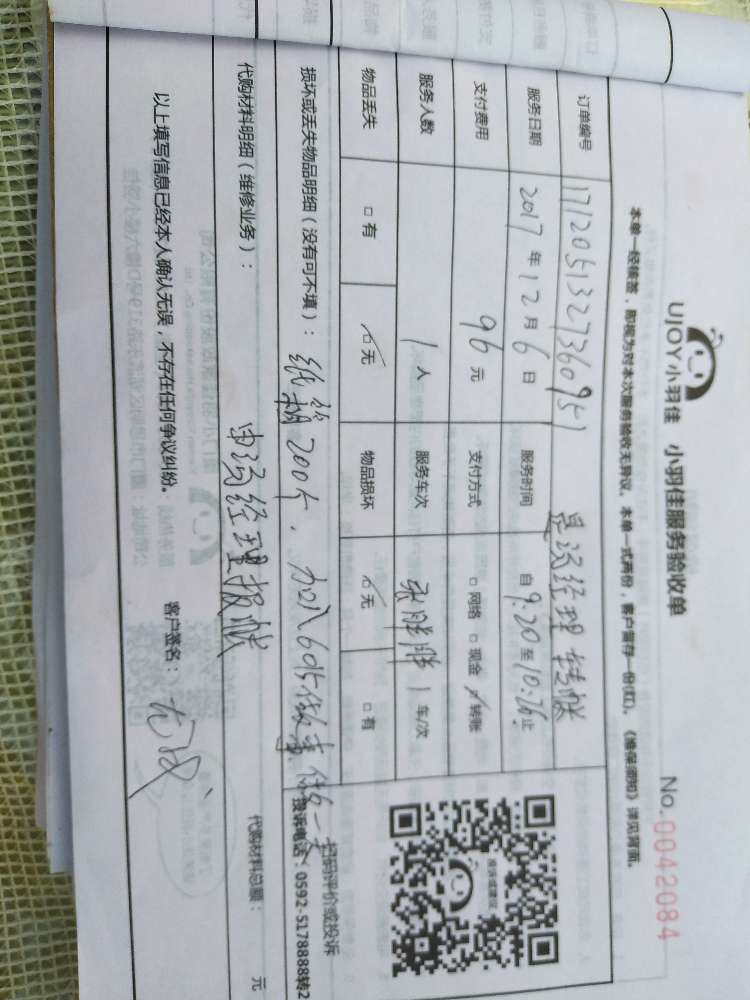 UJOY小羽佳 小羽佳服务验收单
No.0042084
本单一经核签，即视为对本次服务验收无异议。本单一式两份，客户留存一份(红)。《维保须知》详见背面。
订单编号 171205132736095 是该经理转帐
服务日期 2017年12月6日 服务时间 自9:20至10:26止
支付费用 96元 支付方式 □网络 □现金 转账
服务人数 1人 服务车次 张胜胜 1车/次
物品丢失 □有 □无 物品损坏 □无 □有
损坏或丢失物品明细（没有可不填）：纸箱200个，加
代购材料明细（维修业务）：由该经理报帐
代购材料总额： 元
扫码评价或投诉
投诉电话：0592-5178888转2
以上填写信息已经本人确认无误，不存在任何争议纠纷。
客户签名：